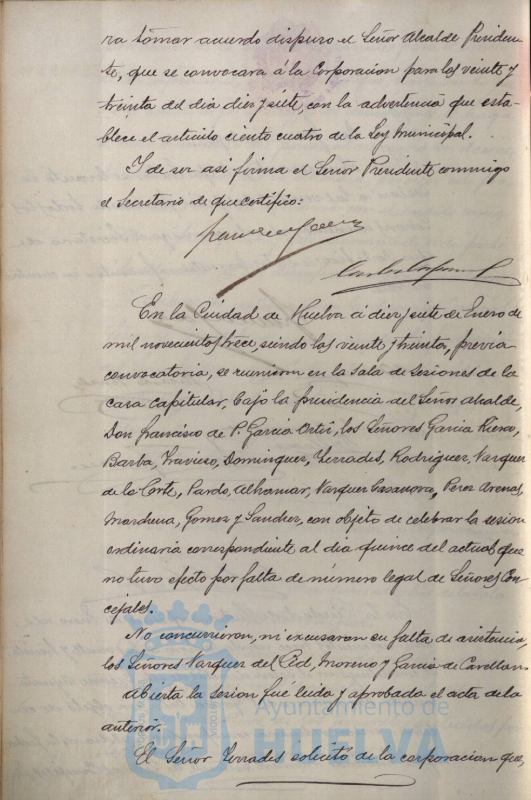 ra tomar acuerdo dispuso el Señor Alcalde Presiden-
te, que se convocara á la Corporacion para las veinte y
treinta del dia diez y siete, con la advertencia que esta-
blece el articulo ciento cuatro de la Ley Municipal.
Y de ser asi firma el Señor Presidente conmigo
el Secretario de que certifico:
En la Ciudad de Huelva á diez y siete de Enero de
mil novecientos trece, siendo las veinte y treinta, previa
convocatoria, se reunieron en la Sala de Sesiones de la
casa capitular, bajo la presidencia del Señor Alcalde,
Don Francisco de P. Garcia Ortiz, los Señores Garcia
Barba, Travieso, Dominguez, Terrades, Rodriguez, Vazquez
de la Corte, Pardo, Alhamar, Vazquez Casanova, Perez Arenas,
Marchena, Gomez y Sanchez, con objeto de celebrar la sesion
ordinaria correspondiente al dia quince del actual que
no tuvo efecto por falta de número legal de Señores Con-
cejales.
No concurrieron, ni excusaron su falta de asistencia,
los Señores Vazquez del Cid, Moreno y Garcia de
Abierta la sesion fué leida y aprobada el acta de la
anterior.
El Señor Terrades solicitó de la corporacion que,
Ayuntamiento de
HUELVA